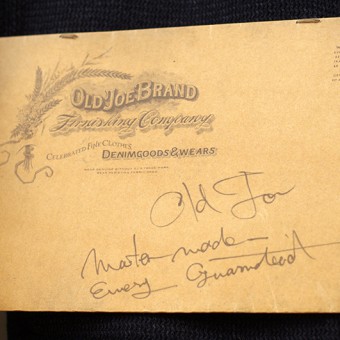 OLD JOE BRAND
Furnishing Company
CELEBRATED FINE CLOTHES
DENIMGOODS & WEARS
Old Joe
Master made
Every Guaranteed